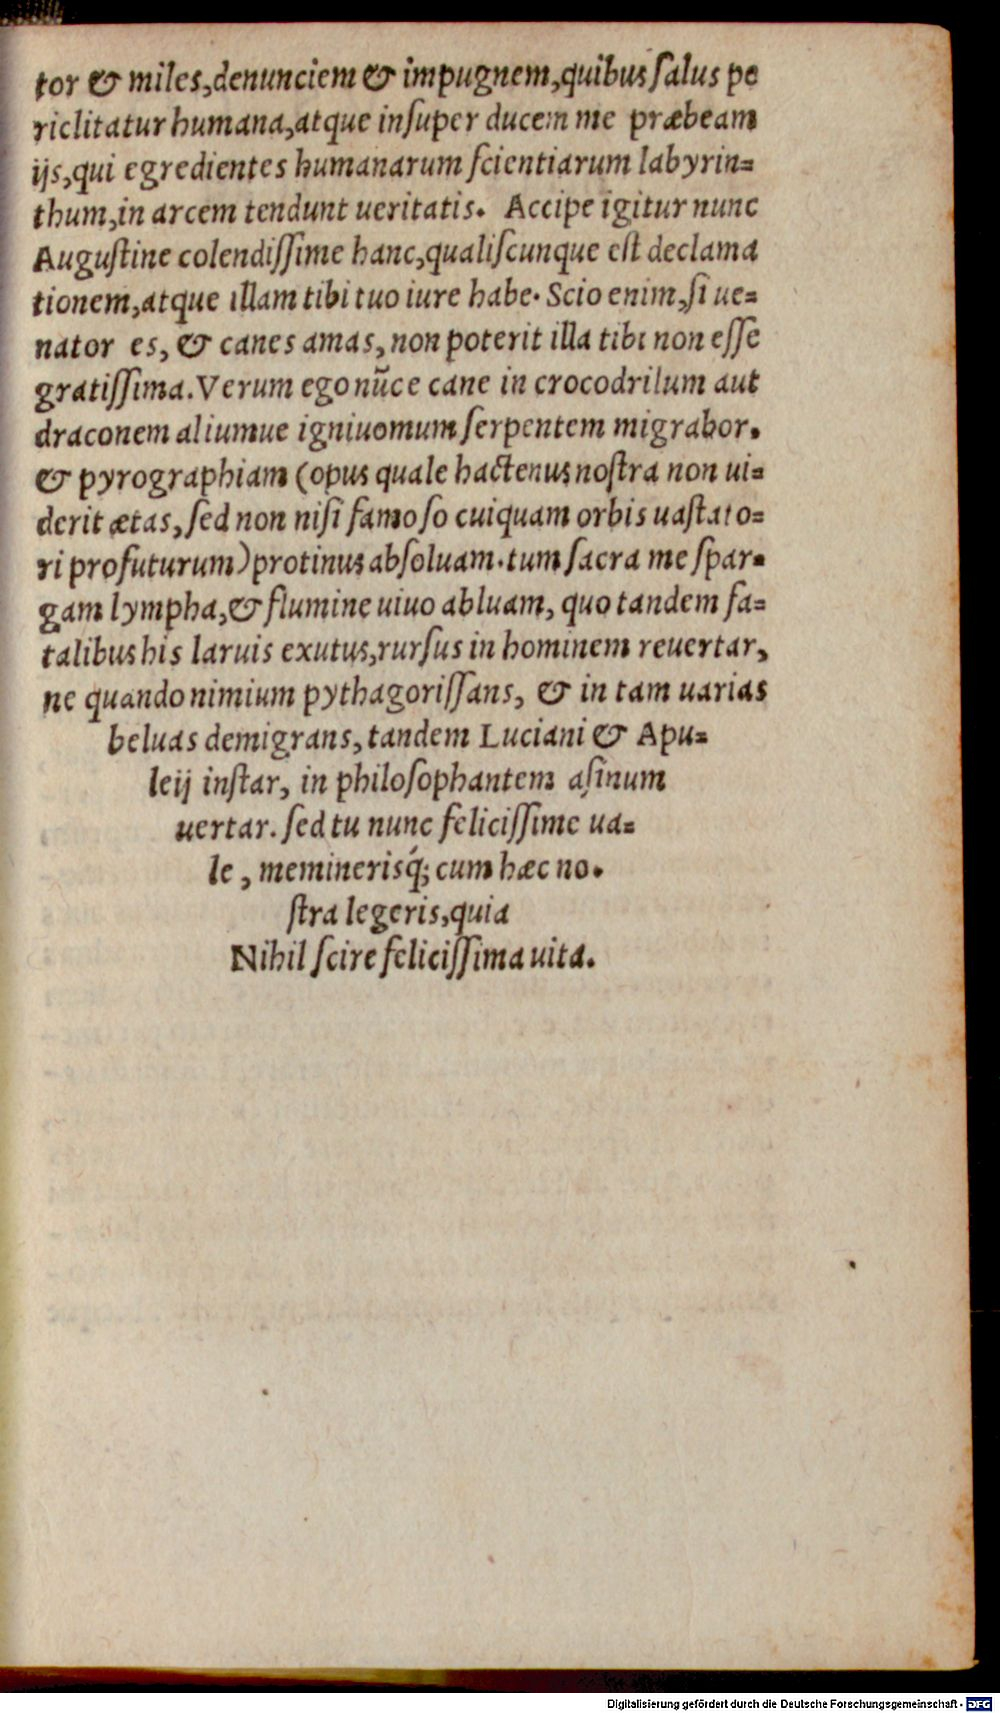 tor & miles,denunciem & impugnem,quibus ſalus pe
riclitatur humana,atque inſuper ducem me præbeam
ijs,qui egredientes humanarum ſcientiarum labyrin=
thum,in arcem tendunt ueritatis. Accipe igitur nunc
Auguſtine colendiſſime hanc,qualiſcunque eſt declama
tionem,atque illam tibi tuo iure habe. Scio enim,ſi ue=
nator es, & canes amas, non poterit illa tibi non eſſe
gratiſſima. Verum ego nūc e cane in crocodrilum aut
draconem aliumue igniuomum ſerpentem migrabor.
& pyrographiam (opus quale hactenus noſtra non ui=
derit ætas, ſed non niſi famoſo cuiquam orbis uaſtato=
ri profuturum) protinus abſoluam. tum ſacra me ſpar=
gam lympha,& flumine uiuo abluam, quo tandem fa=
talibus his laruis exutus,rurſus in hominem reuertar,
ne quando nimium pythagoriſſans, & in tam uarias
beluas demigrans, tandem Luciani & Apu=
leij inſtar, in philoſophantem aſinum
uertar. ſed tu nunc feliciſſime ua=
le, meminerisq́; cum hæc no.
ſtra legeris,quia
Nihil ſcire feliciſſima uita.
Digitalisierung gefördert durch die Deutsche Forschungsgemeinschaft - DFG